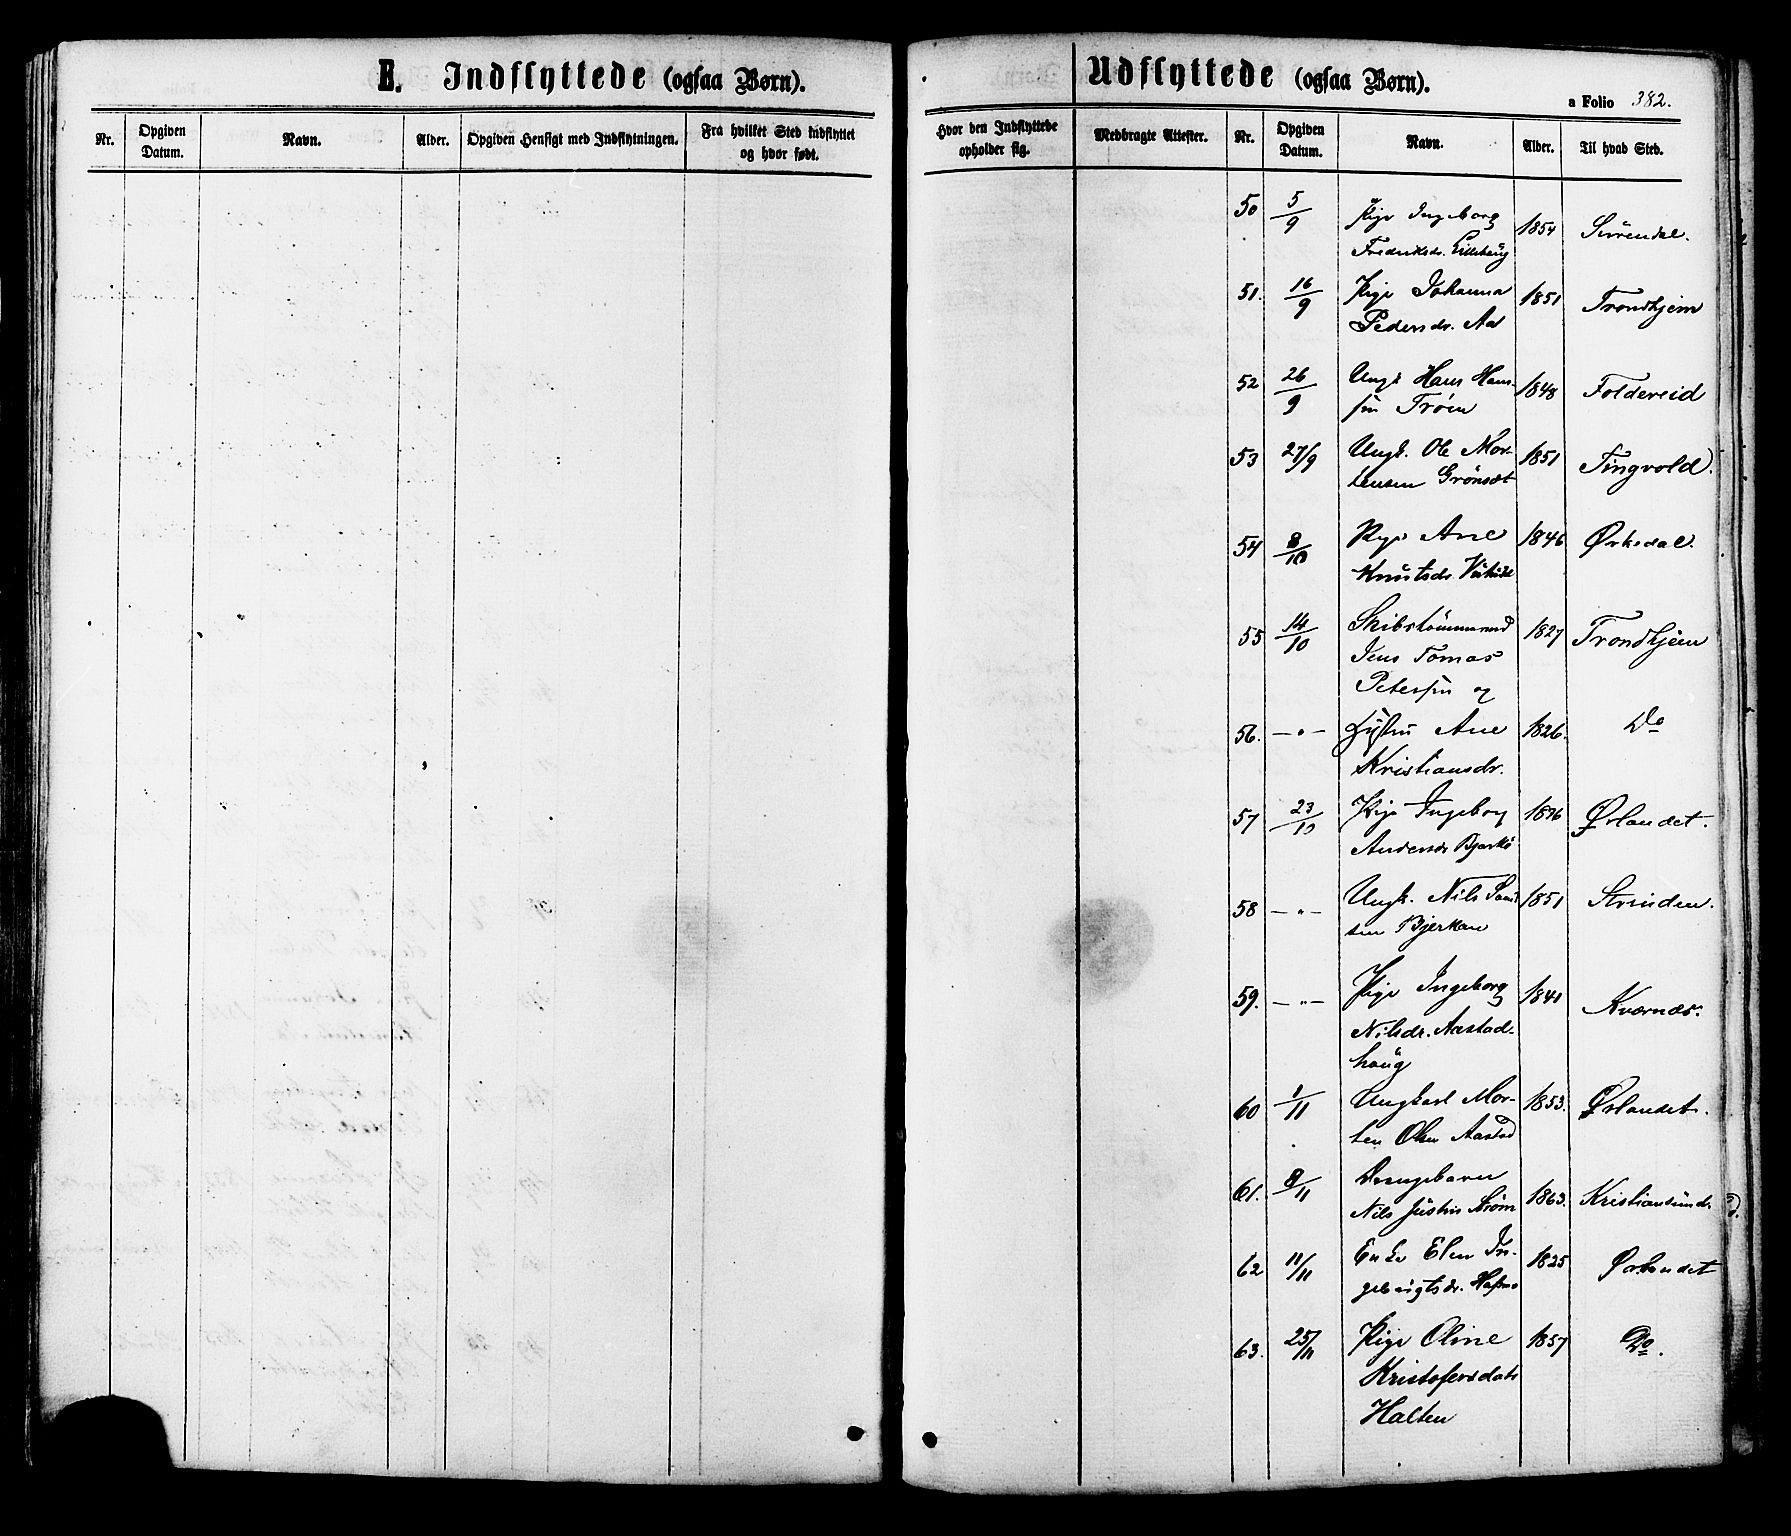 E. Indflyttede (ogsaa Børn).
Nr.
Opgiven Datum.
Navn.
Alder.
Opgiven Hensigt med Indflytningen.
Fra hvilket Sted indflyttet og hvor født.
Udflyttede (ogsaa Børn).
a Folio 382.
Hvor den Indflyttede opholder sig.
Medbragte Attester.
Nr.
Opgiven Datum.
Navn.
Alder.
Til hvad Sted.
50 5/9 Pige Ingeborg 1854 Surendal.
Frederiksdr. Lilleberg
51. 16/9 Pige Johanna 1851 Trondhjem
Pedersdr. Aa
52 26/9 Ungk Hans Han- 1848 Foldereid
sen Trøen
53 27/9 Ungk. Ole Mor- 1851 Tingvold.
tensen Grønsæt
54 8/10 Pige Ane 1846 Ørkedal.
Knutsdr.
55 14/10 Skibstømmermand 1827 Trondhjem
Jens Tomas
Petersen og
56. — " — Hustru Ane 1826. Do
Kristiansdr.
57 23/10 Pige Ingeborg 1836 Ørlandet.
Andersdr Bjerkø
58 — " — Ungk. Nils 1851 Strinden.
sen Bjerkan
59. — " — Pige Ingeborg 1841 Kværnæs.
Nilsdr. Aastad-
haug
60 1/11 Ungkarl Mor- 1853. Ørlandet.
ten Olsen Aastad
61. 8/11 Drengebarn
Nils Justin Strøm 1863. Kristiansund.
62 11/11 Enke Elen In- 1825 Ørlandet
gebrigtsdr.
63. 25/11 Pige Oline 1857 Do.
Kristofersdatr
Halten